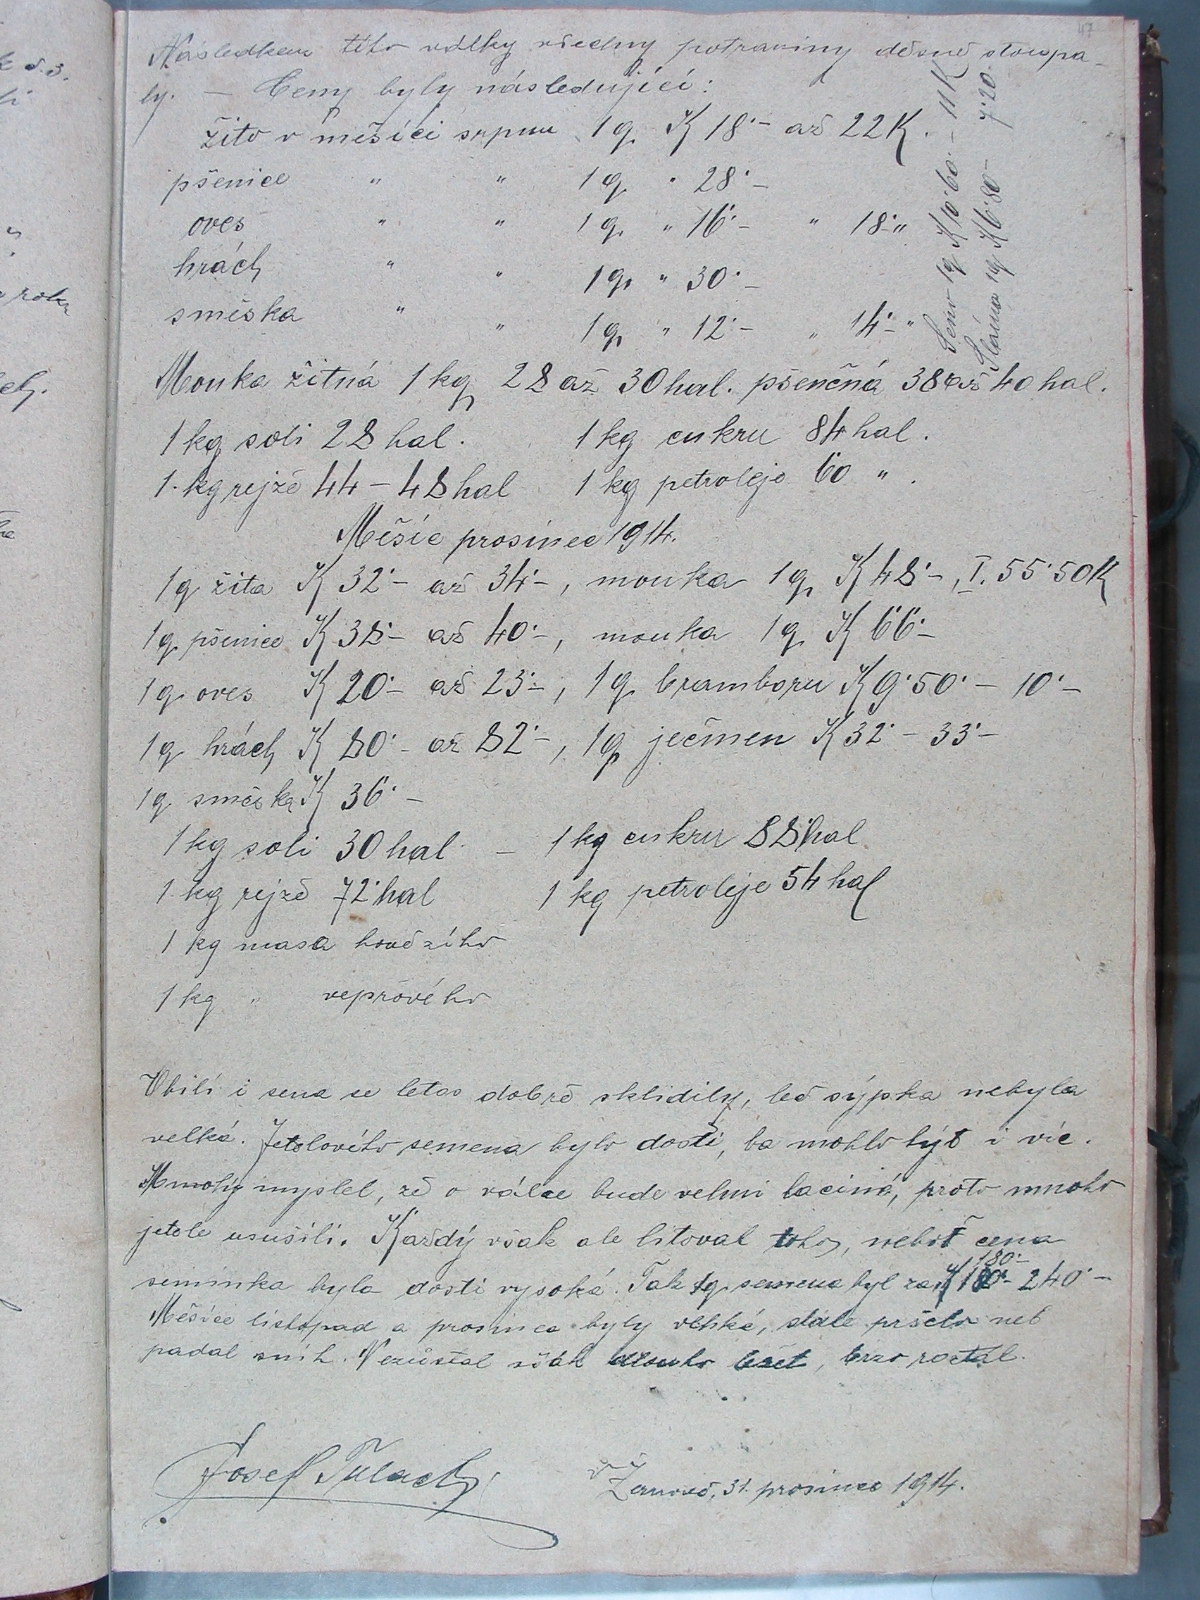 47
Následkem této války všechny potraviny děsně stoupa-
ly. — Ceny byly následující:
žito v měsíci srpnu 1 q K 18·– až 22 K.
pšenice " " 1 q " 28·–
oves " " 1 q. " 16·– " 18·– "
hrách " " 1 q. " 30·–
směska " " 1 q. " 12·– " 14·– "
Seno 1 q K 10·60 – 11 K
Sláma 1 q K 6·80 – 7·20
Mouka žitná 1 kg 28 až 30 hal. pšenčná 38 až 40 hal.
1 kg soli 28 hal. 1 kg cukru 84 hal.
1 kg rejže 44 – 48 hal 1 kg petroleje 60 " .
Měsíc prosinec 1914.
1 q žita K 32·– až 34·–, mouka 1 q. K 48·–, I. 55·50 K
1 q. pšenice K 38·– až 40·–, mouka 1 q. K 66·–
1 q. oves K 20·– až 23·–, 1 q. bramboru K 9·50·– 10·–
1 q hrách K 80·– až 82·–, 1 q. ječmen K 32·– 33·–
1 q. směska K 36·–
1 kg soli 30 hal – 1 kg cukru 88 hal
1 kg rejže 72 hal 1 kg petroleje 54 hal
1 kg masa hovězího
1 kg " vepřového
Obilí i sena se letos dobře sklidily, leč sýpka nebyla
velká. Jetelového semena bylo dosti, ba mohlo být i víc.
Mnohý myslel, že o válce bude velmi laciné, proto mnoho
jetele usušili. Každý však ale litoval toho, neboť cena
semínka byla dosti vysoká. Tak 1 q semena byl za K 180·– 240·–
Měsíce listopad a prosinec byly vlhké, stále pršelo neb
padal sníh. Nezůstal však dlouho ležet, brzo roztál.
Josef Tulach
V Žernově, 31. prosince 1914.